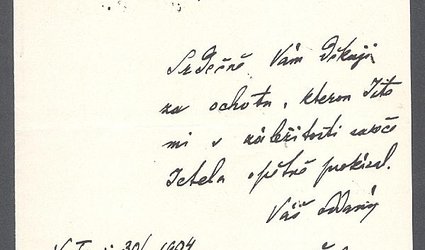 Srdečně Vám děkuji
za ochotu, kterou jste
mi v záležitosti
opětně prokázal.
Váš oddaný
30/ 1904